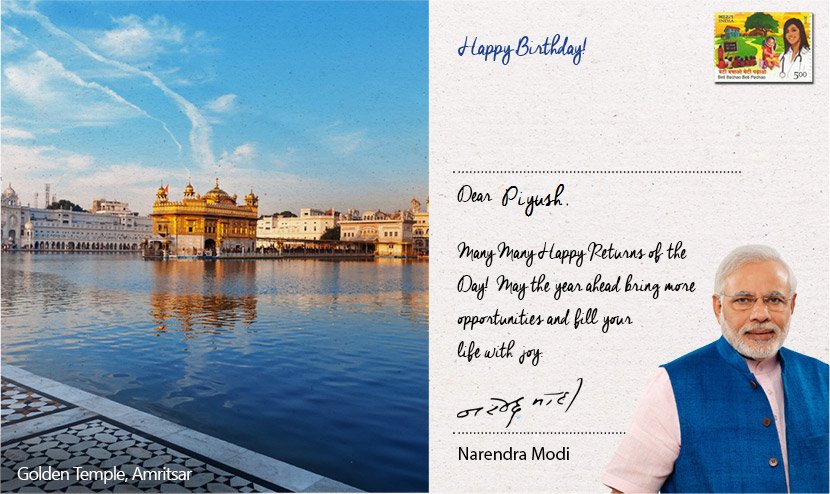 Happy Birthday!
भारत
INDIA
बेटी बचाओ बेटी पढ़ाओ
Beti Bachao Beti Padhao
5.00
Dear Piyush,
Many Many Happy Returns of the
Day! May the year ahead bring more
opportunities and fill your
life with joy.
नरेन्द्र मोदी
Narendra Modi
Golden Temple, Amritsar